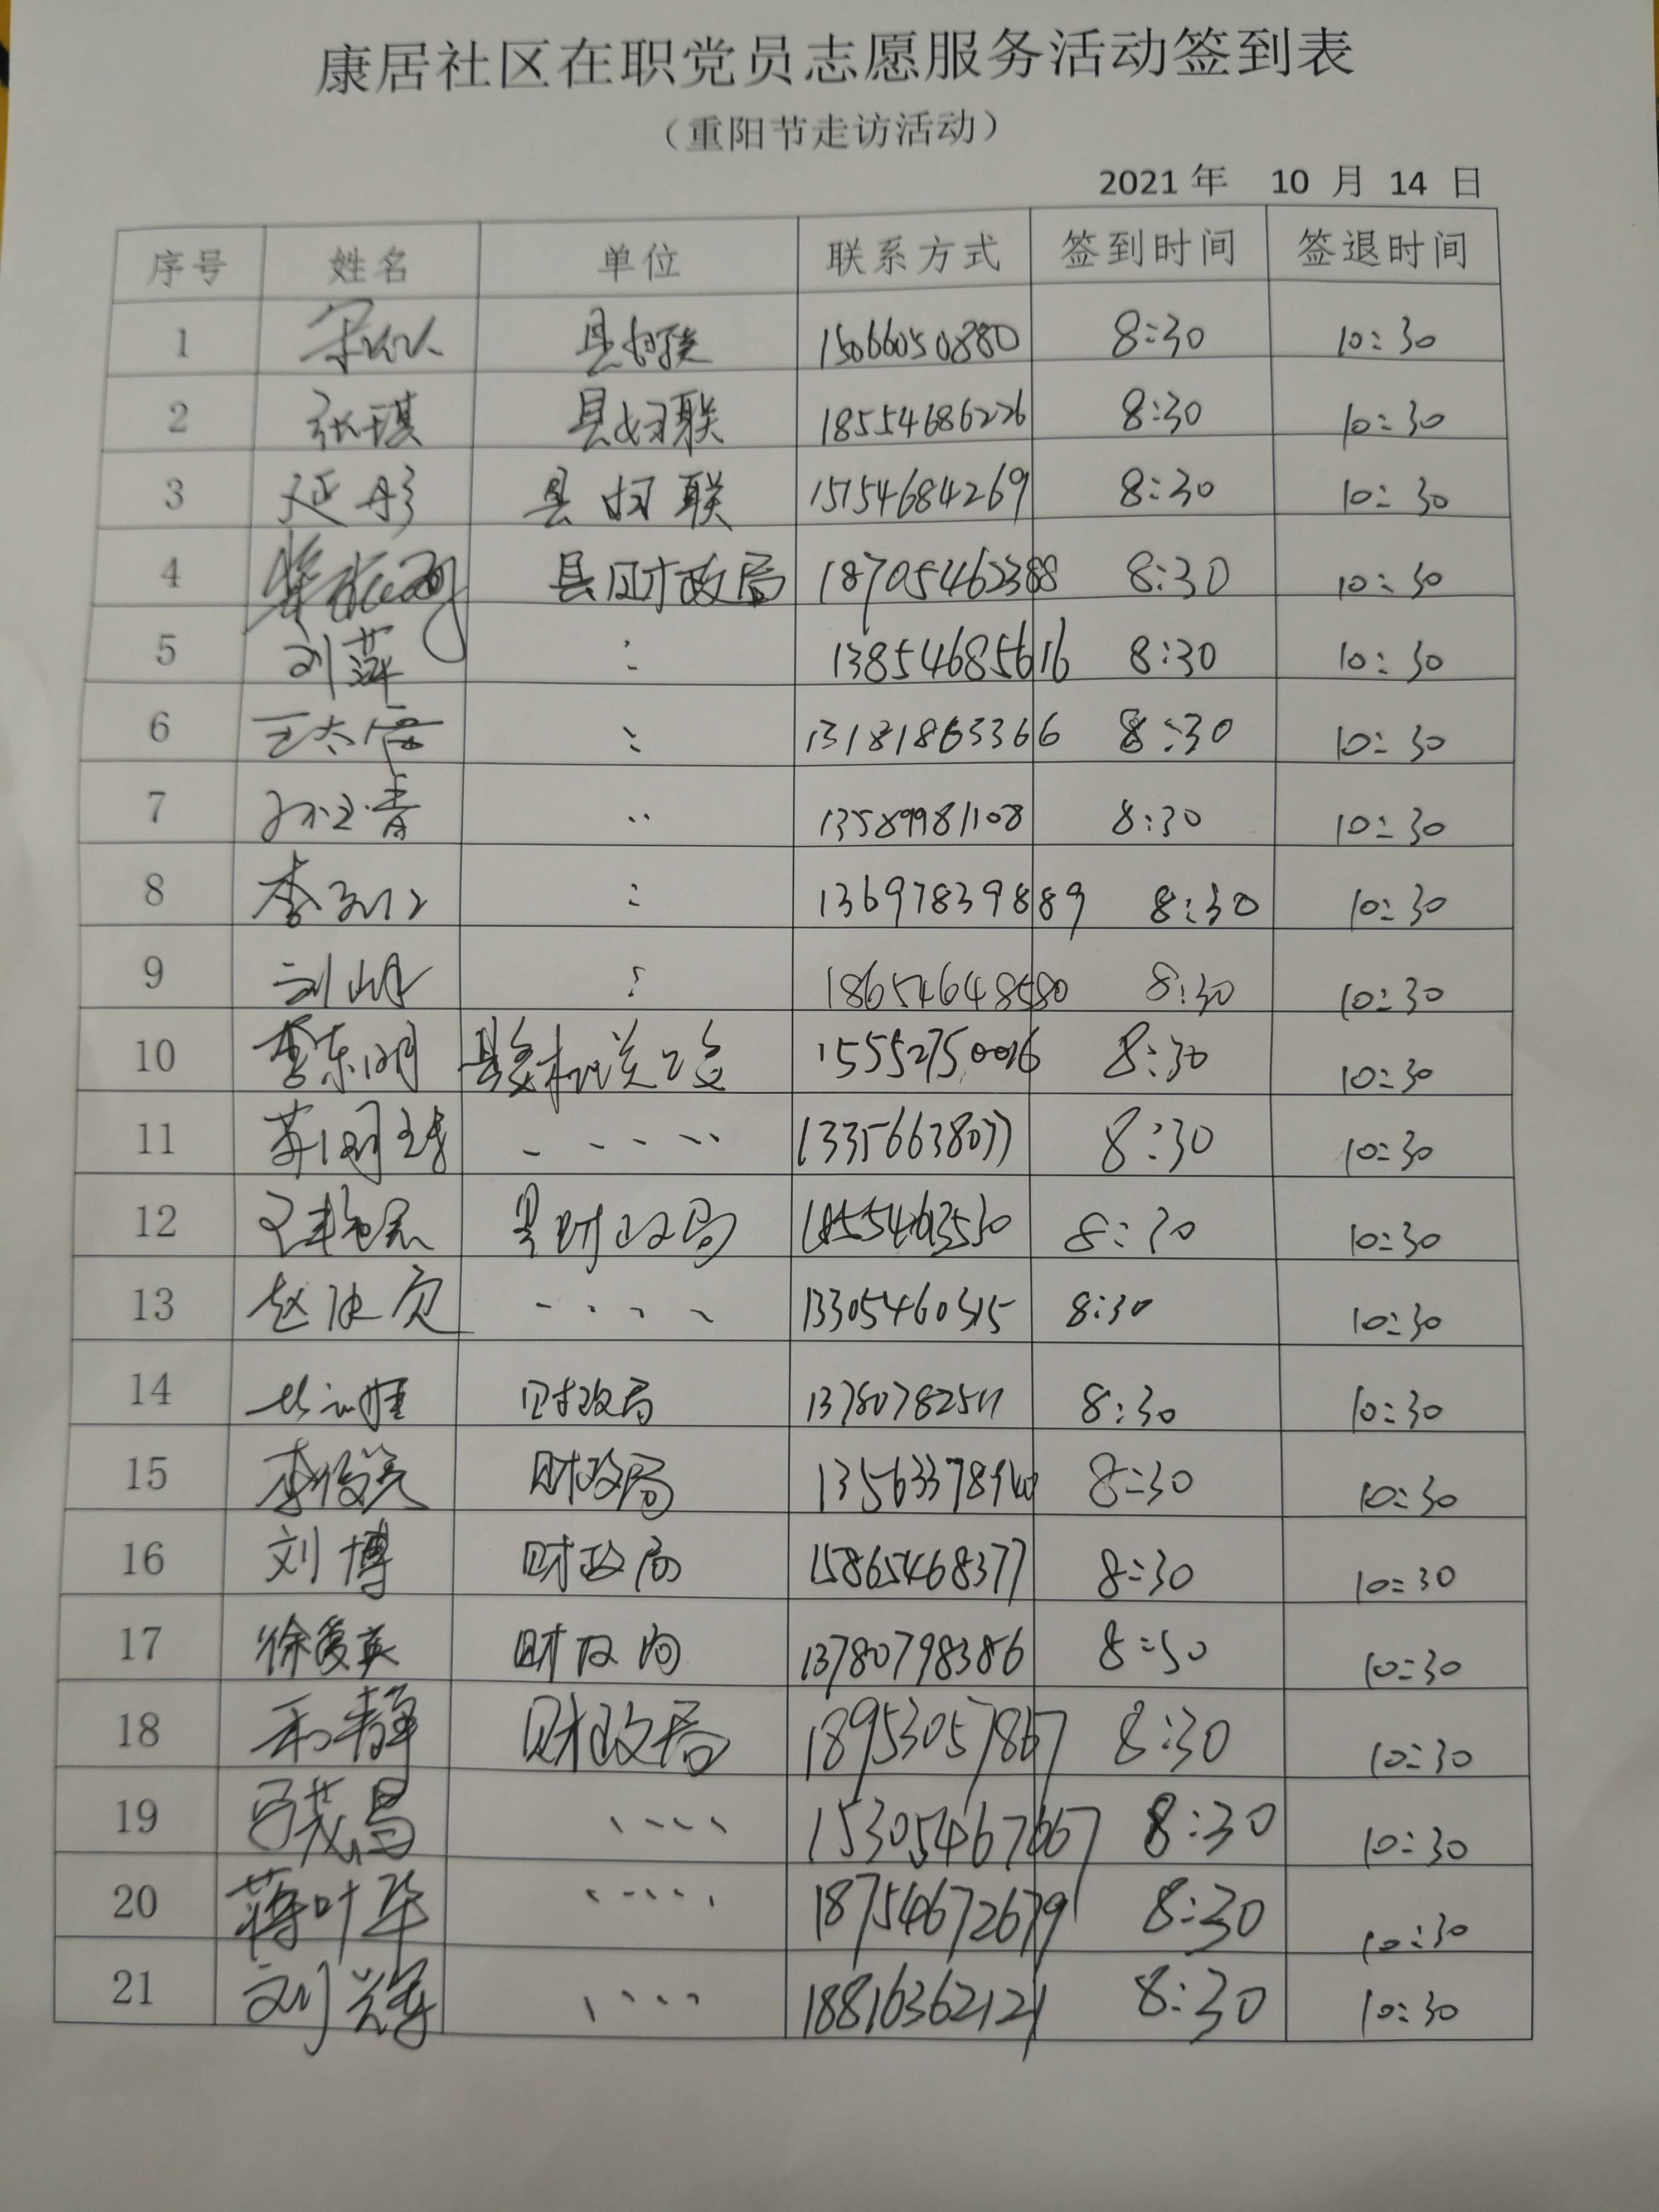 康居社区在职党员志愿服务活动签到表
（重阳节走访活动）
2021 年 10 月 14 日
序号 姓名 单位 联系方式 签到时间 签退时间
1 县妇联 15066050880 8:30 10:30
2 张琪 县妇联 18554686226 8:30 10:30
3 延彤 县妇联 15154684269 8:30 10:30
4 县财政局 18705462388 8:30 10:30
5 刘萍 : 13854685616 8:30 10:30
6 : 13181863366 8:30 10:30
7 孙文青 .. 13589981108 8:30 10:30
8 : 13697839889 8:30 10:30
9 刘峰 : 18654648580 8:30 10:30
10 李东明 8:30 10:30
11 13356638077 8:30 10:30
12 县财政局 8:30 10:30
13 8:30 10:30
14 财政局 8:30 10:30
15 李俊亮 财政局 8:30 10:30
16 刘博 财政局 15865468377 8:30 10:30
17 徐爱英 财政局 13780798386 8:30 10:30
18 财政局 18953057867 8:30 10:30
19 15305467667 8:30 10:30
20 蒋叶华 18754672679 8:30 10:30
21 刘 18816362121 8:30 10:30